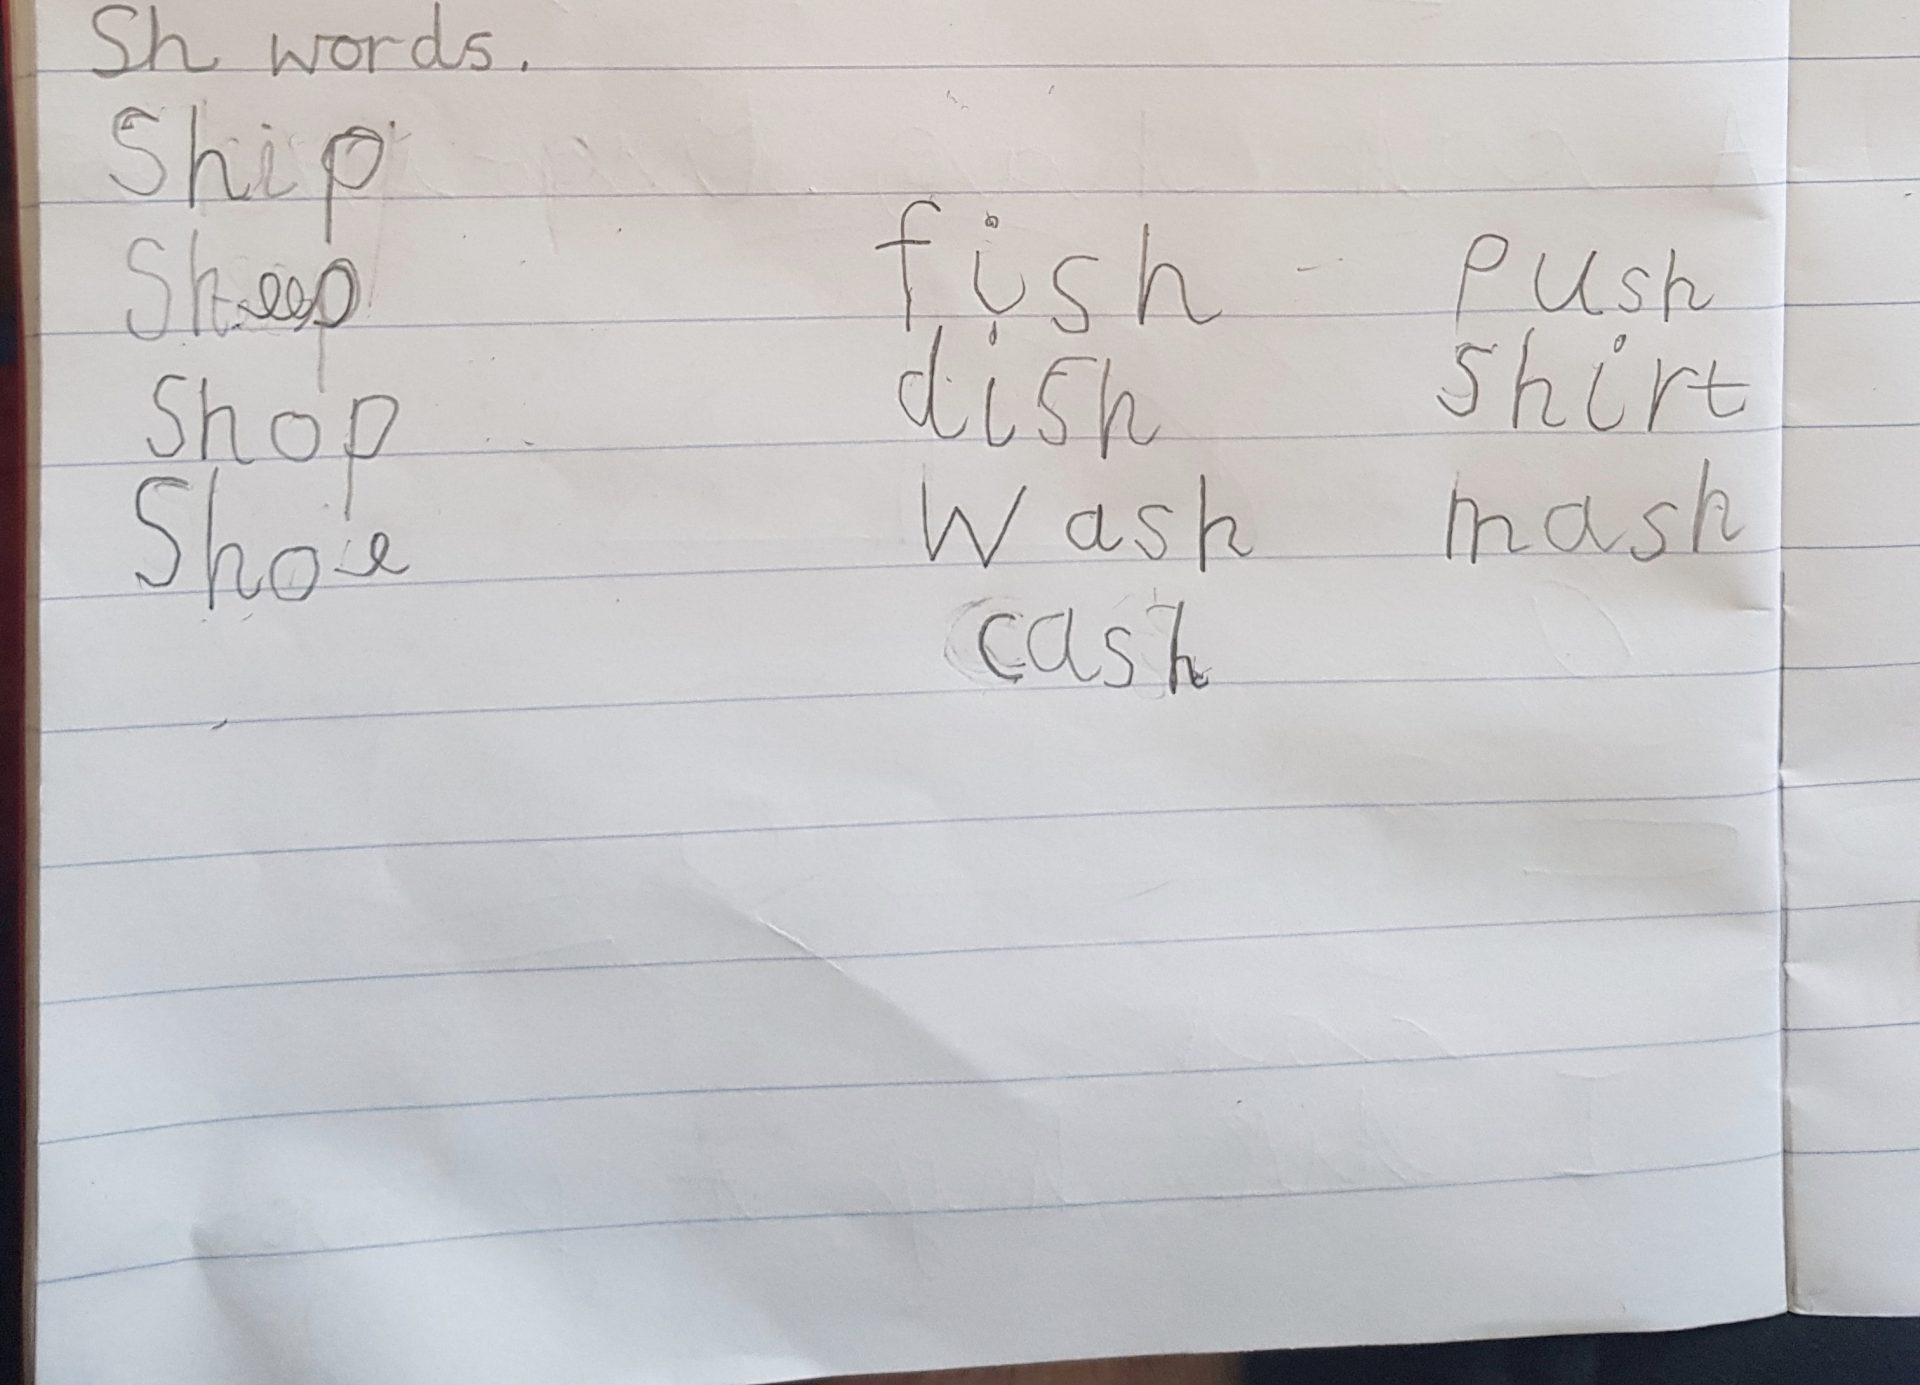 Sh words.
Ship
Sheep
Shop
Shoe
fish
dish
Wash
cash
Push
shirt
mash